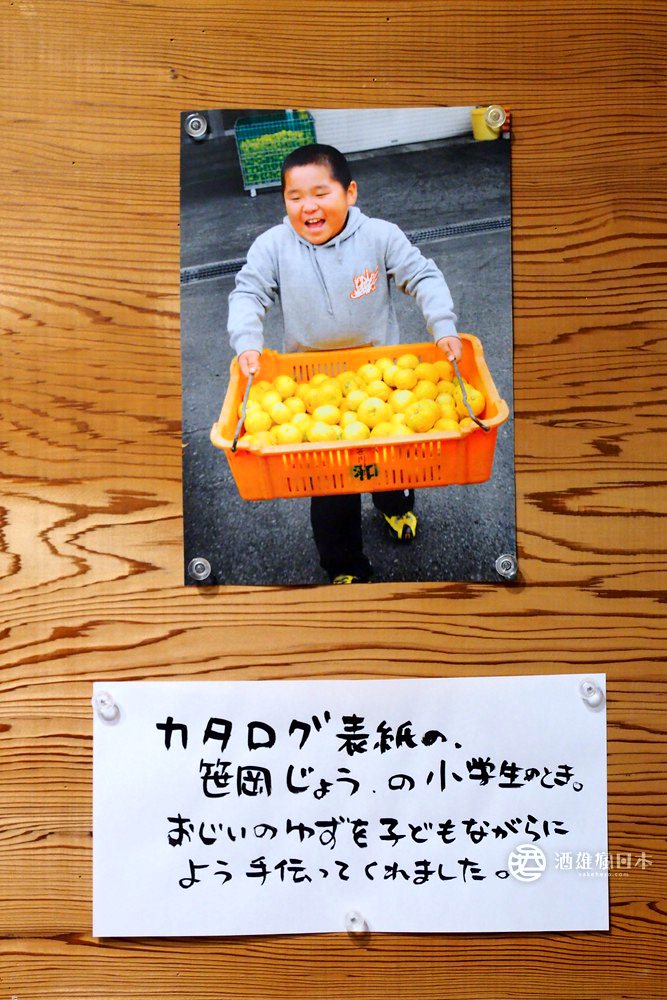 カタログ表紙の、
笹岡じょう、の小学生のとき。
おじいのゆずを子どもながらに
よう手伝ってくれました。
酒雄瘋日本
sakehero.com